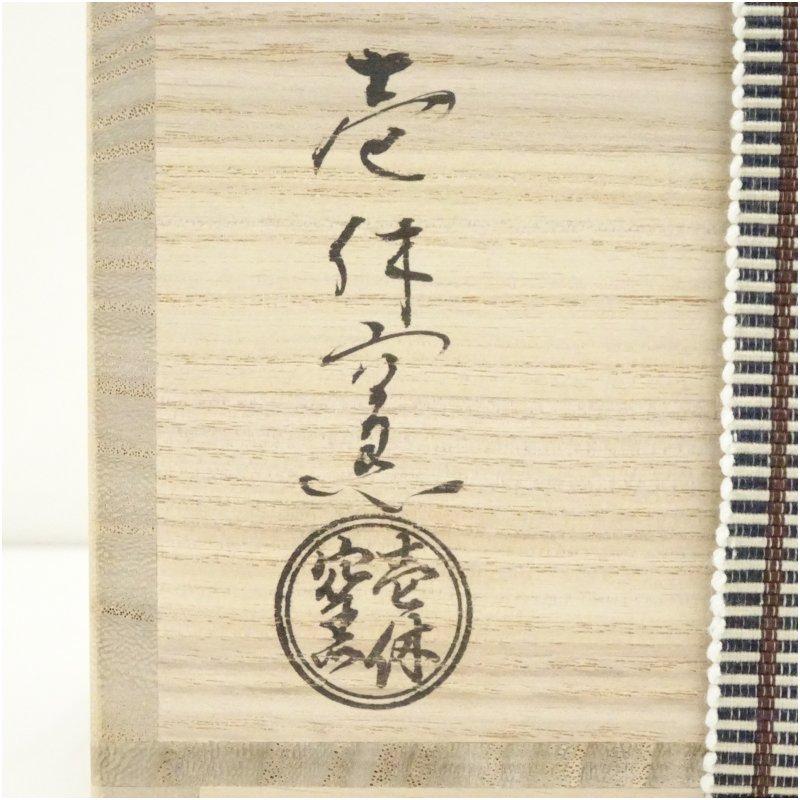 壱休窯
壱休
窯